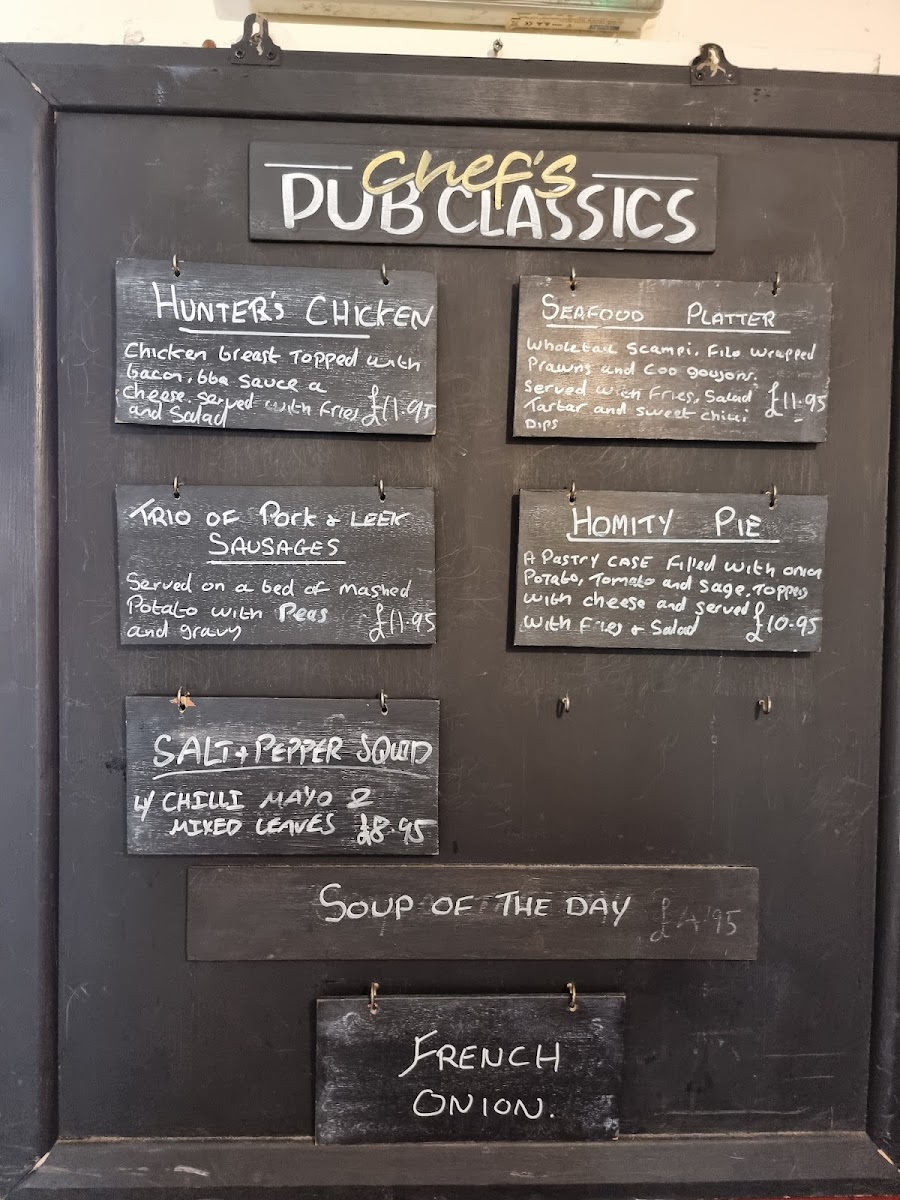 Chef's
PUB CLASSICS
HUNTER'S CHICKEN
Chicken breast Topped with
bacon, bbq sauce a
cheese. Served with Fries
and Salad
£11.95
SEAFOOD PLATTER
Wholetail Scampi, Filo wrapped
Prawns and COD goujons.
Served with Fries, Salad
Tartar and sweet chilli
DIPS
£11.95
TRIO OF Pork & LEEK
SAUSAGES
Served on a bed of mashed
Potato with Peas
and gravy
£11.95
HOMITY PIE
A PASTRY CASE Filled with onion
Potato, Tomato and Sage, TOPPED
with cheese and served
with Fries & Salad
£10.95
SALT + PEPPER SQUID
W/ CHILLI MAYO &
MIXED LEAVES £8.95
SOUP OF THE DAY £4.95
FRENCH
ONION.